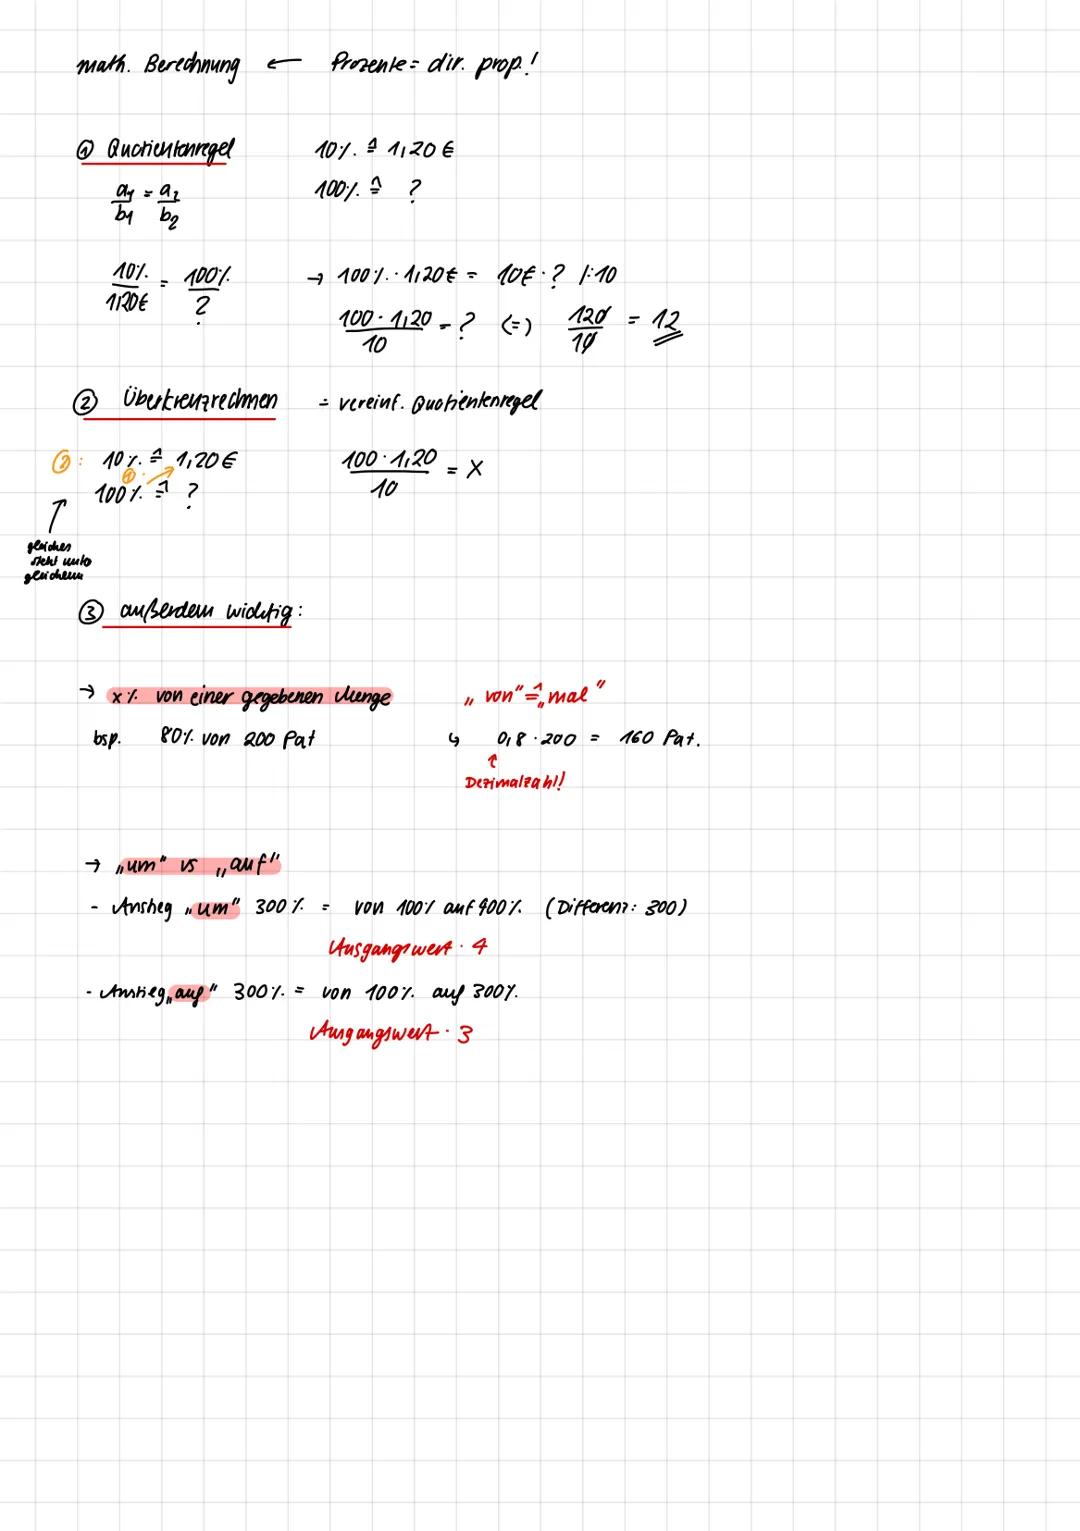 math. Berechnung ← Prozente = dir. prop.!
① Quotientenregel 10% ≙ 1,20 €
a1/b1 = a2/b2 100% ≙ ?
10%/1,20€ = 100%/? → 100% · 1,20€ = 10€ · ? /:10
100 · 1,20/10 = ? (=) 120/10 = 12
② Überkreuzrechnen = vereinf. Quotientenregel
②: 10% ≙ 1,20 € 100 · 1,20/10 = x
①
100% ≙ ?
↑
gleiches
steht unter
gleichem
③ außerdem wichtig:
→ x% von einer gegebenen Menge „von" ≙ „mal"
bsp. 80% von 200 Pat ↳ 0,8 · 200 = 160 Pat.
↑
Dezimalzahl!
→ „um" vs „auf"
- Anstieg „um" 300% = von 100% auf 400% (Differenz: 300)
Ausgangswert · 4
- Anstieg „auf" 300% = von 100% auf 300%.
Ausgangswert · 3